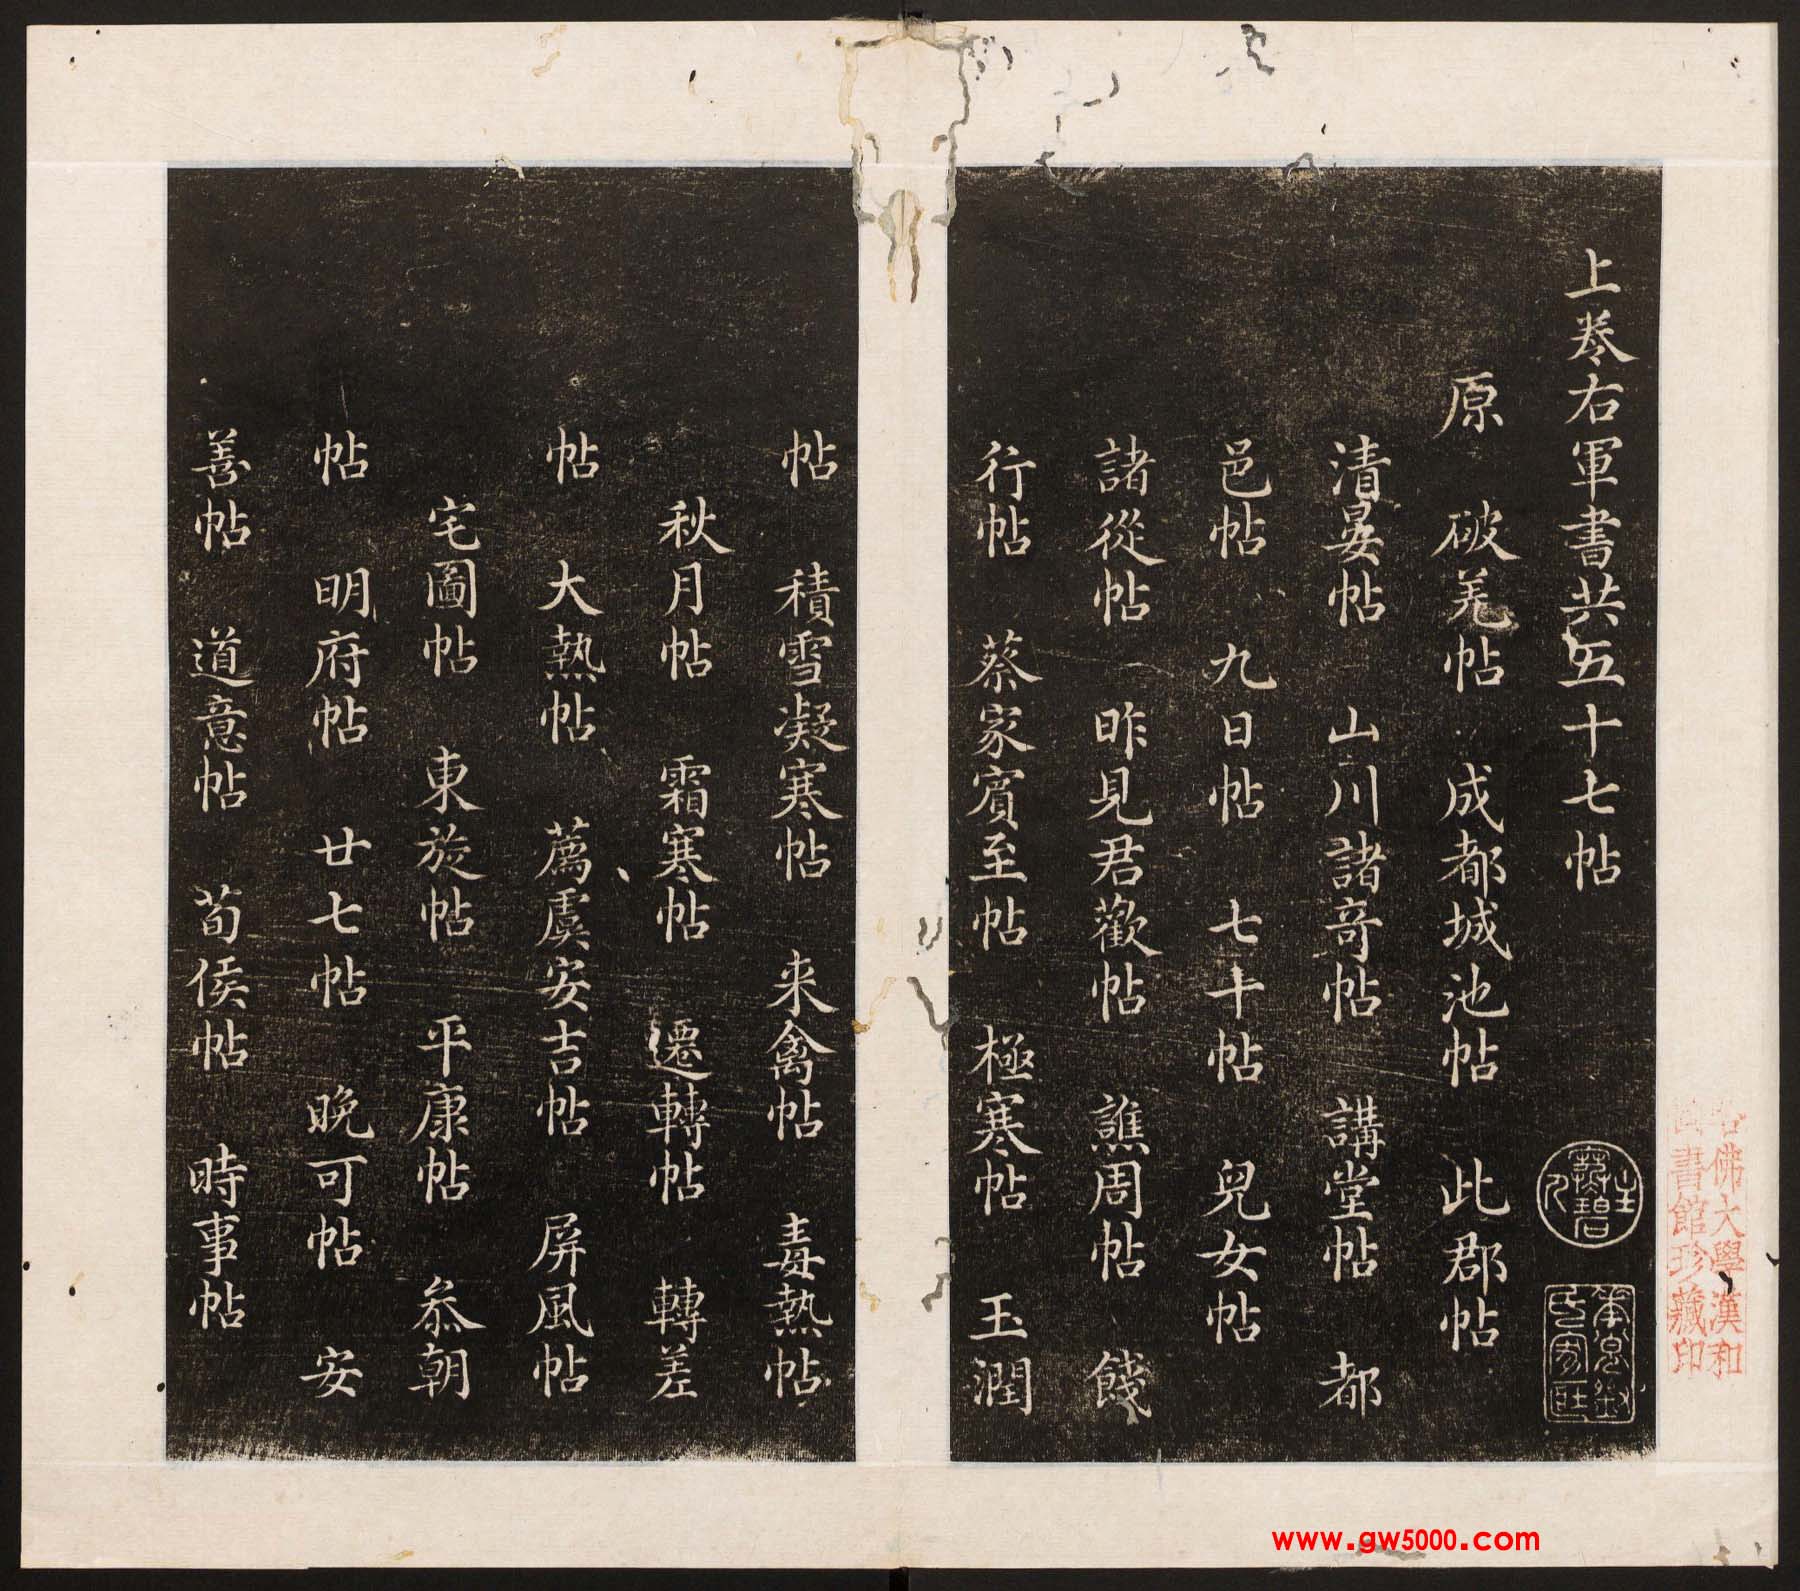 上卷右軍書共五十七帖
原 破羌帖 成都城池帖 此郡帖
清晏帖 山川諸奇帖 講堂帖 都
邑帖 九日帖 七十帖 兒女帖
諸從帖 昨見君歡帖 譙周帖 餞
行帖 蔡家賓至帖 極寒帖 玉潤
帖 積雪凝寒帖 来禽帖 毒熱帖
秋月帖 霜寒帖 遷轉帖 轉差
帖 大熱帖 薦虞安吉帖 屏風帖
宅圖帖 東旋帖 平康帖 叅朝
帖 明府帖 廿七帖 晩可帖 安
善帖 道意帖 荀侯帖 時事帖
佛大學漢和
書館珍藏印
www.gw5000.com